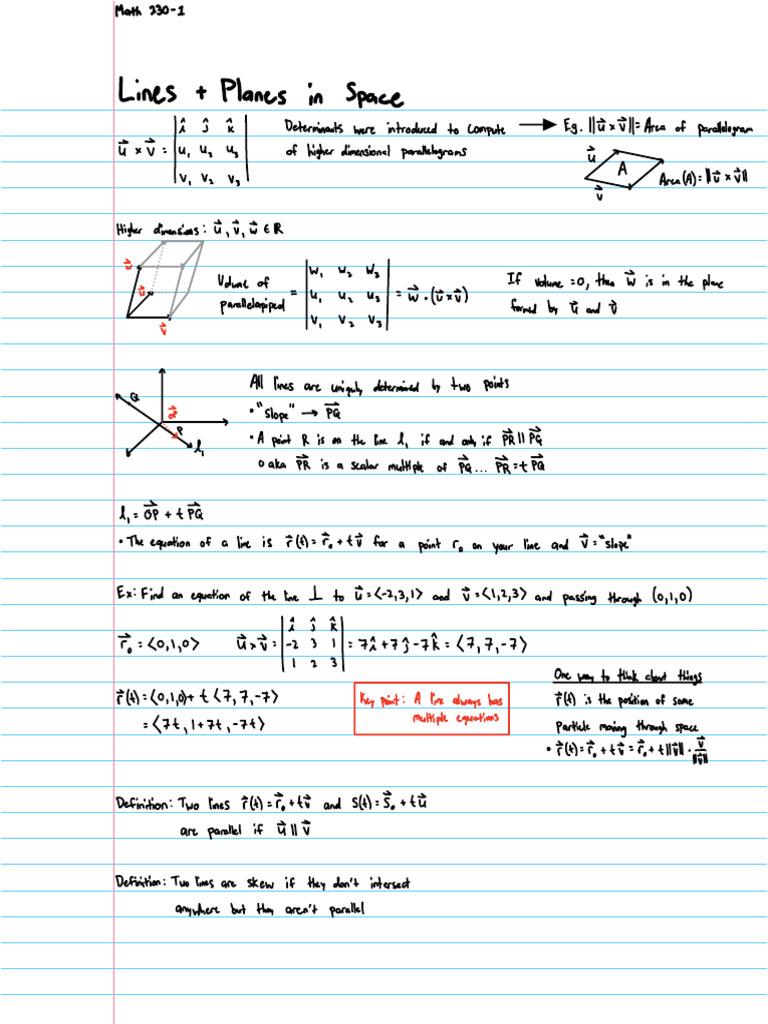 Math 230-1
Lines + Planes in Space
u⃗ × v⃗ = | î ĵ k̂ |
| u₁ u₂ u₃ |
| v₁ v₂ v₃ |
Determinants were introduced to compute
of higher dimensional parallelograms
→ Eg. ||u⃗ × v⃗|| = Area of parallelogram
u⃗
A
v⃗
Area(A) = ||u⃗ × v⃗||
Higher dimensions: u⃗, v⃗, w⃗ ∈ ℝ
v⃗
Volume of
parallelapiped
= | w₁ w₂ w₃ |
| u₁ u₂ u₃ |
| v₁ v₂ v₃ |
= w⃗ · (u⃗ × v⃗)
If volume = 0, then w⃗ is in the plane
formed by u⃗ and v⃗
Q
P
l₁
All lines are uniquely determined by two points
• "Slope" → PQ⃗
• A point R is on the line l₁ if and only if PR⃗ || PQ⃗
o aka PR⃗ is a scalar multiple of PQ⃗... PR⃗ = t PQ⃗
l₁ = OP⃗ + t PQ⃗
• The equation of a line is r⃗(t) = r⃗₀ + t v⃗ for a point r₀ on your line and v⃗ = "slope"
Ex: Find an equation of the line ⊥ to u⃗ = ⟨-2,3,1⟩ and v⃗ = ⟨1,2,3⟩ and passing through (0,1,0)
r⃗₀ = ⟨0,1,0⟩
u⃗ × v⃗ = | î ĵ k̂ |
| -2 3 1 |
| 1 2 3 |
= 7î + 7ĵ - 7k̂ = ⟨7, 7, -7⟩
r⃗(t) = ⟨0,1,0⟩ + t ⟨7, 7, -7⟩
= ⟨7t, 1+7t, -7t⟩
Key point: A line always has
multiple equations
One way to think about things
r⃗(t) is the position of some
particle moving through space
• r⃗(t) = r⃗₀ + t v⃗ = r⃗₀ + t ||v⃗|| · v⃗/||v⃗||
Definition: Two lines r⃗(t) = r⃗₀ + t v⃗ and S(t) = S⃗₀ + t u⃗
are parallel if u⃗ || v⃗
Definition: Two lines are skew if they don't intersect
anywhere but they aren't parallel